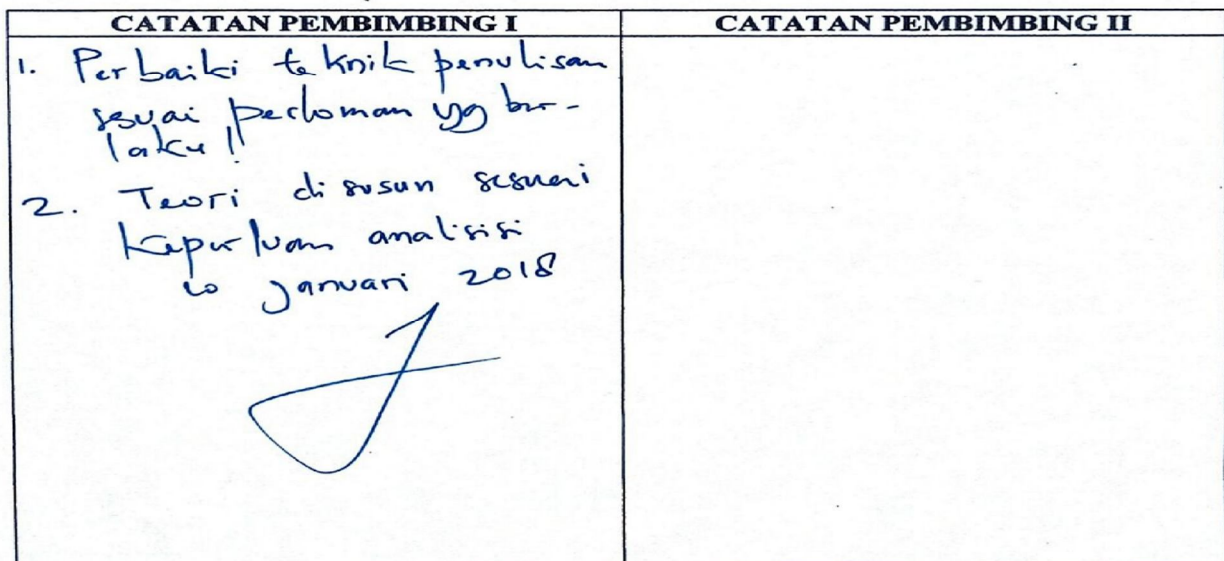 CATATAN PEMBIMBING I
CATATAN PEMBIMBING II
1. Perbaiki teknik penulisan
sesuai pedoman yg ber-
laku!
2. Teori disusun sesuai
keperluan analisisi
Januari 2018